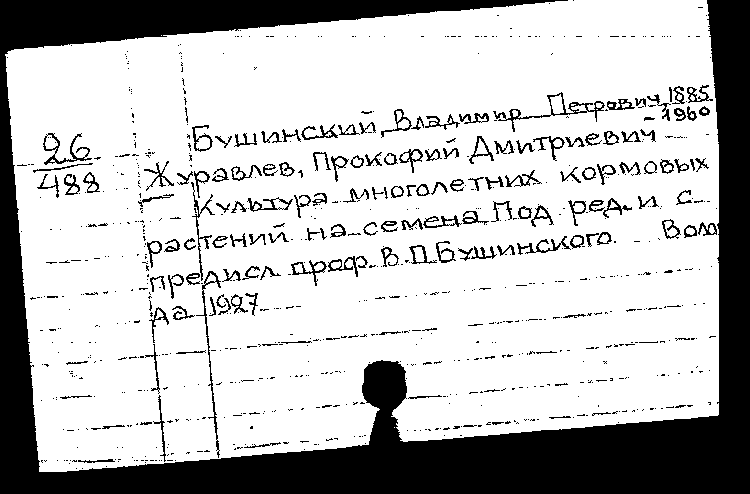 Бушинский, Владимир Петрович, 1885
- 1960
26
488
Журавлев, Прокофий Дмитриевич
Культура многолетних кормовых
растений на семена Под ред. и с
предисл. проф. В.П. Бушинского. Волог
да 1927